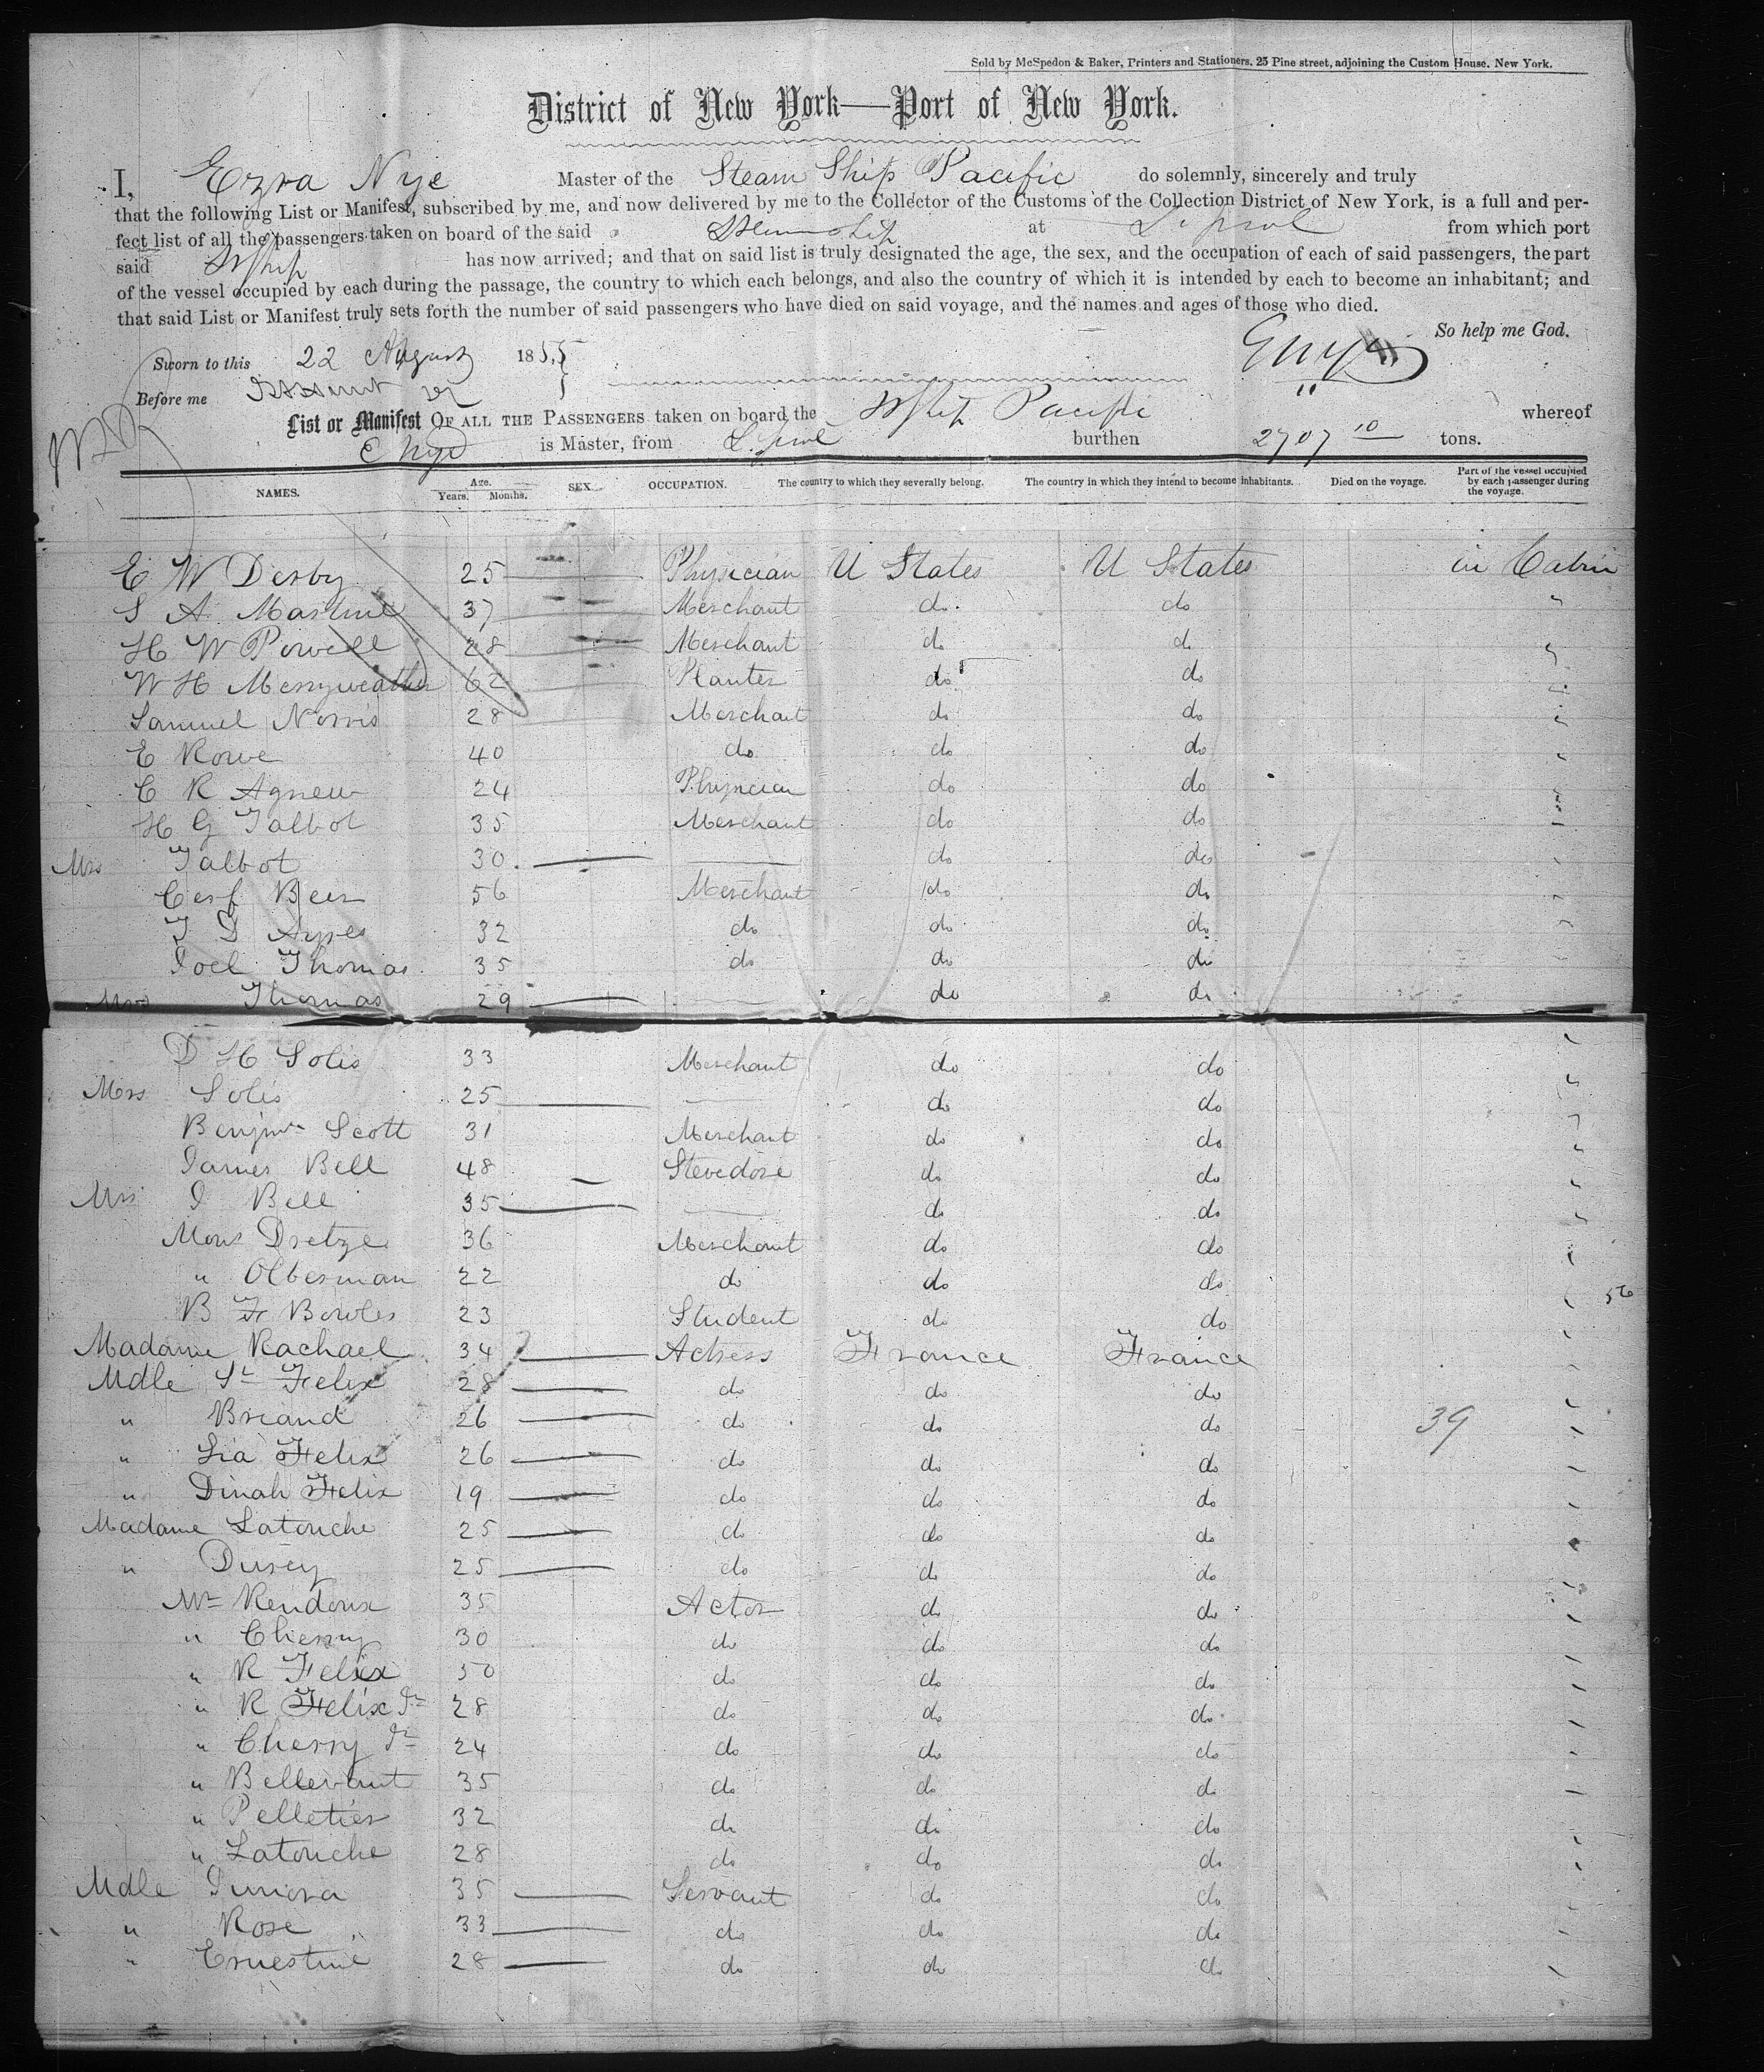 Sold by McSpedon & Baker, Printers and Stationers. 25 Pine street, adjoining the Custom House. New York.
District of New York—Port of New York.
I, Ezra Nye Master of the Steam Ship Pacific do solemnly, sincerely and truly
that the following List or Manifest, subscribed by me, and now delivered by me to the Collector of the Customs of the Collection District of New York, is a full and per-
fect list of all the passengers taken on board of the said Steamship at L.pool from which port
said SShip has now arrived; and that on said list is truly designated the age, the sex, and the occupation of each of said passengers, the part
of the vessel occupied by each during the passage, the country to which each belongs, and also the country of which it is intended by each to become an inhabitant; and
that said List or Manifest truly sets forth the number of said passengers who have died on said voyage, and the names and ages of those who died.
So help me God.
Sworn to this 22 August 1855 E Nye
Before me
List or Manifest OF ALL THE PASSENGERS taken on board the SShip Pacific whereof
E Nye is Master, from L.pool burthen 2707 10 tons.
NAMES. Age. Years. Months. SEX. OCCUPATION. The country to which they severally belong. The country in which they intend to become inhabitants. Died on the voyage. Part of the vessel occupied by each passenger during the voyage.
E W Derby 25 Physician U States U States in Cabin
S A Martine 37 Merchant do do "
H W Powell 28 Merchant do do "
W H Merryweather 62 Planter do do "
Samuel Norris 28 Merchant do do "
E Rowe 40 do do do "
C R Agnew 24 Physician do do "
H G Talbot 35 Merchant do do "
Mrs Talbot 30 do do "
Cerf Beer 56 Merchant do do "
T D Ayres 32 do do do "
Joel Thomas 35 do do do
Mrs Thomas 29 do do
D H Solis 33 Merchant do do "
Mrs Solis 25 do do "
Benjmn Scott 31 Merchant do do "
James Bell 48 Stevedore do do "
Mrs J Bell 35 do do "
Mons Dretze 36 Merchant do do "
" Olberman 22 do do do "
B F Bowles 23 Student do do " 56
Madame Rachael 34 Actress France France "
Mdle St Felix 28 do do do "
" Briand 26 do do do 39 "
" Lia Felix 26 do do do "
" Dinah Felix 19 do do do "
Madame Latouche 25 do do do "
" Durey 25 do do do "
Mr Rendoux 35 Actor do do "
" Cherry 30 do do do "
" R Felix 50 do do do "
" R Felix Jr 28 do do do "
" Cherry Jr 24 do do do "
" Bellevaut 35 do do do "
" Pelletier 32 do do do
" Latouche 28 do do do "
Mdle 35 Servant do do "
" Rose 33 do do do "
" Ernestine 28 do do do "